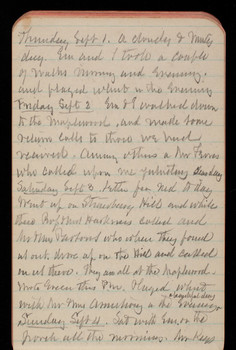 Thursday Sept 1. A cloudy & misty
day. Em and I took a couple
of walks Morning and Evening.
and played whist in the Evening
Friday Sept 2 Em & I walked down
to the Maplewood, and made some
return calls to those we had
received. Among others a Mr
who called upon me yesterday
Saturday Sept 3. Letter from Ned to day
Went up on Strawberry Hill and while
there Prof Mrs Harkness called and
Mr Mrs Parsons who when they found
us out, drove up on the Hill and called
on us there. They are all at the Maplewood.
Wrote this P.M. Played whist
with Mr Mrs Armstrong in the Evening
Sunday Sept 4. Sat with Em on the
Porch all the morning. Mr